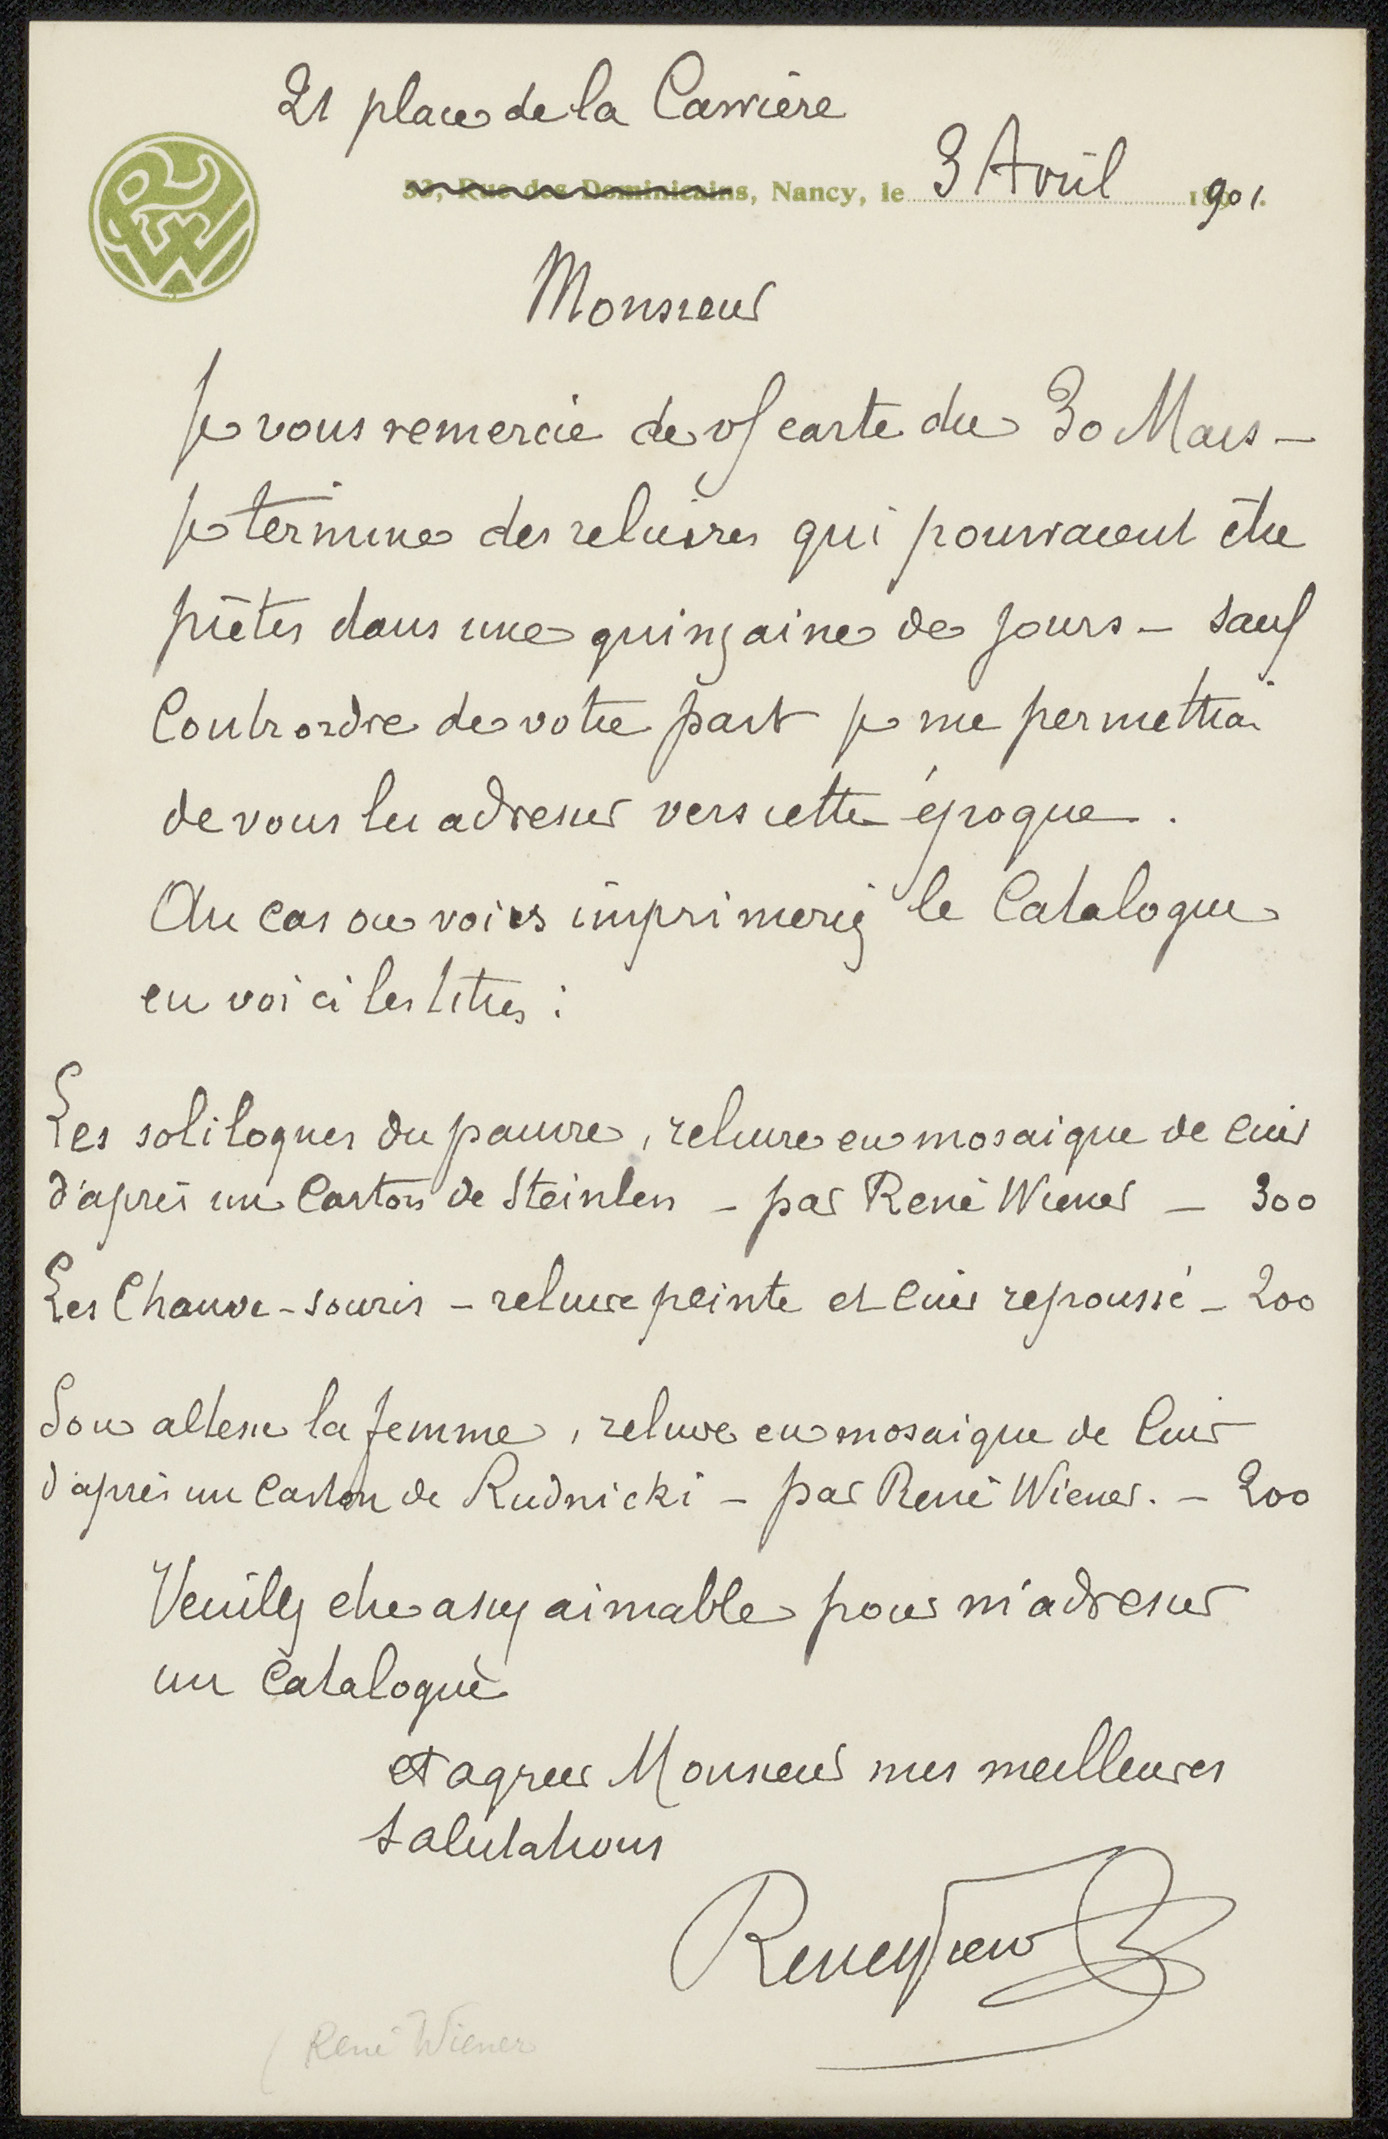 21 place de la Carrière
53, Rue des Dominicains, Nancy, le 3 Avril 1901.
Monsieur
Je vous remercie de v/ carte du 30 Mars –
je termine des reliures qui pourraient être
prêtes dans une quinzaine de jours – sauf
Contrordre de votre part je me permettrai
de vous les adresser vers cette époque.
Au cas ou vous imprimeriez le Catalogue
en voici les titres :
Les soliloques du pauvre, reliure en mosaique de cuir
d'après un Carton de Steinlen – par René Wiener – 300
Les Chauve-souris – reliure peinte et cuir repoussé – 200
Son altesse la femme, reliure en mosaique de Cuir
d'après un Carton de Rudnicki – par René Wiener. – 200
Veuillez être assez aimable pour m'adresser
un Catalogue
et agreer Monsieur mes meilleures
Salutations
René Wiener
(René Wiener